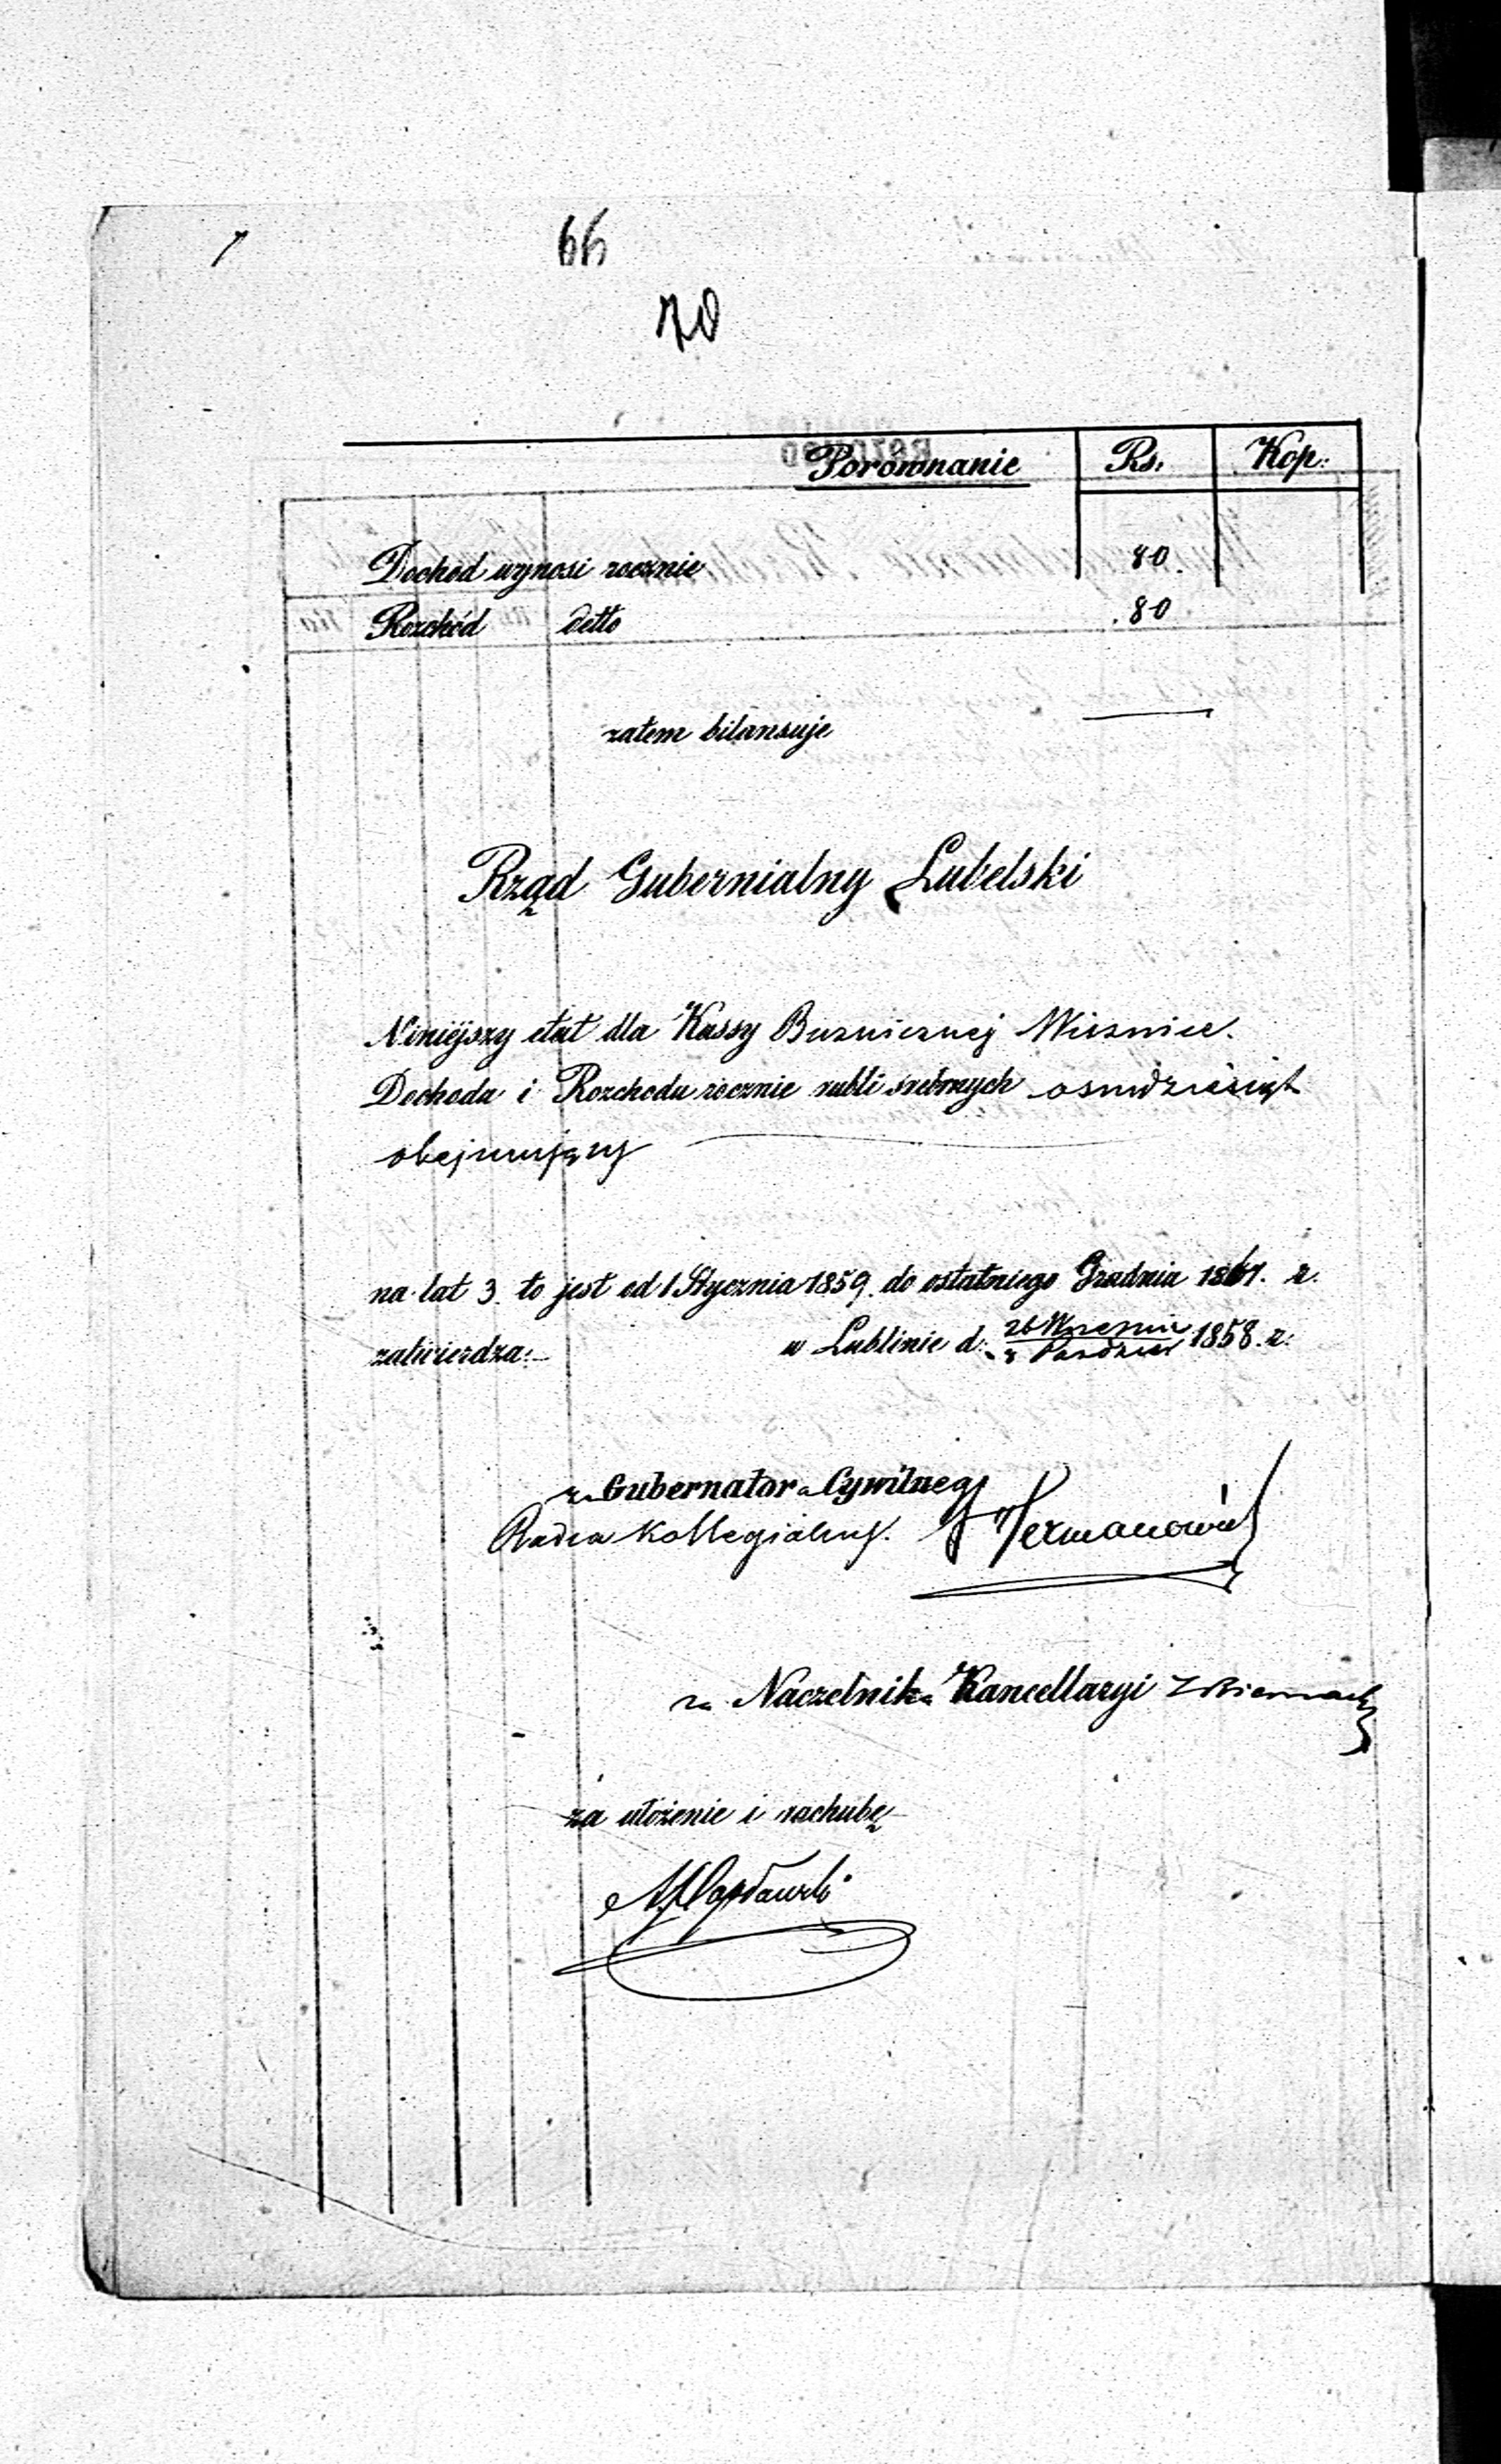 66
70
Porównanie Rs: Kop:
Dochód wynosi rocznie 80.
Rozchód detto 80
zatem bilansuje
Rząd Gubernialny Lubelski
Niniejszy etat dla Kassy Buznicznej Wisznice.
Dochodu i Rozchodu rocznie rubli srebrnych osmdziesiąt
obejmujący
na lat 3. to jest od 1 Stycznia 1859. do ostatniego Grudnia 1861. r.
zatwierdza:
w Lublinie d: 26 Września / 8 Paździer 1858. r:
za Gubernatora Cywilnego
Radca Kollegialny. Hermanowicz
za Naczelnika Kancellaryi
za ułożenie i rachubę